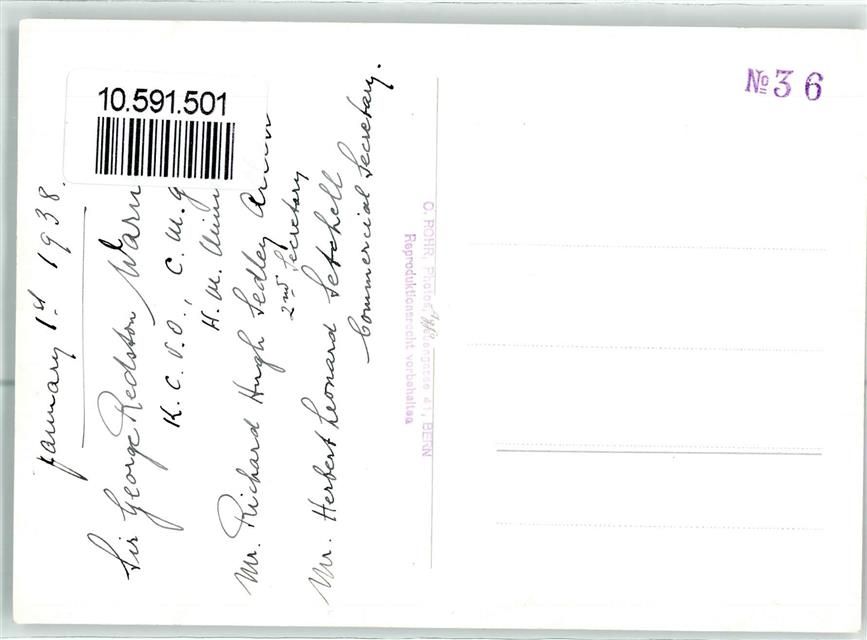 10.591.501
January 1st 1938.
Sir George Redston Warn
K.C.V.O., C.M.G
H.M. Mini
Mr. Richard Hugh Sedley
2nd Secretary
Mr. Herbert Leonard Setchell
Commercial Secretary.
O. ROHR, Photo, 41, BERN
Reproduktionsrecht vorbehalten
No 36